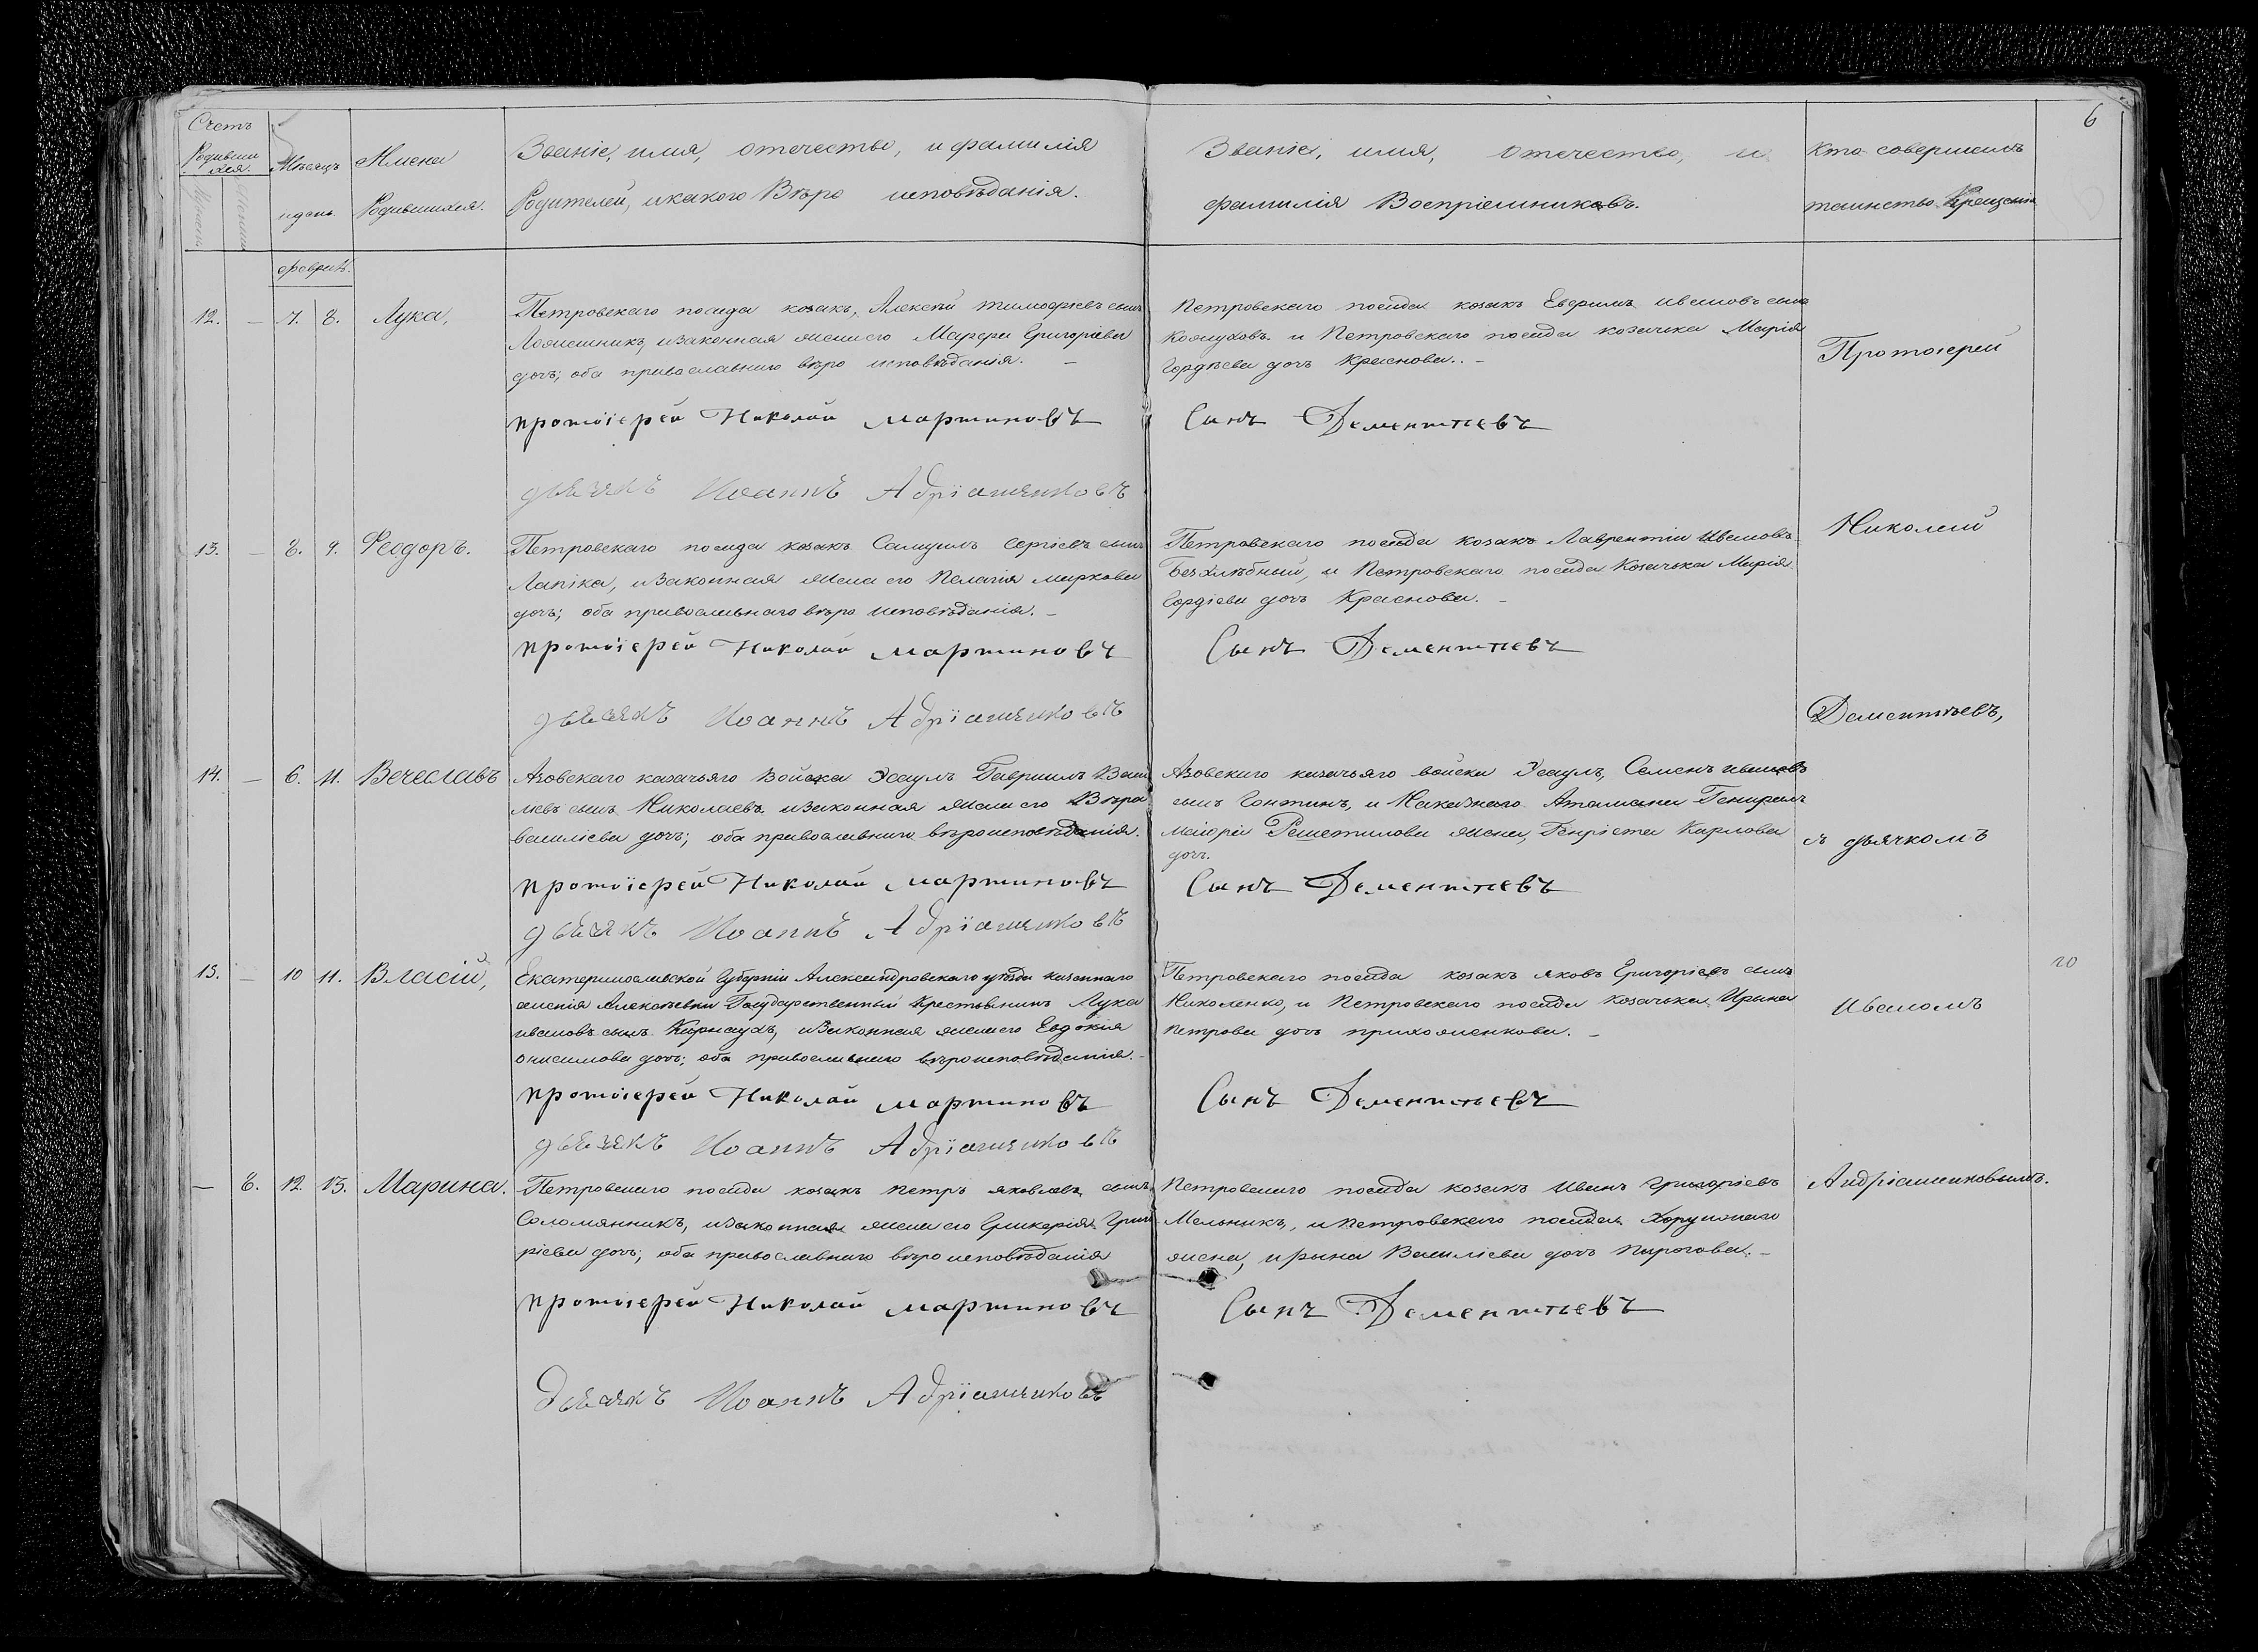 6
Счетъ
Родивши
хся.
Мѣсяцъ
и день.
Имена
Родившихся.
Званіе, имя, отечество, и фамилія
Родителей, и какого Вѣро исповѣданія.
Званіе, имя, отечество, и
фамилія Воспріемниковъ.
Кто совершилъ
таинство Крещенія
февраль.
12. — 7. 8. Лука,
Петровскаго посада козакъ, Алексѣй тимофѣевъ сынъ
и законная жена его Марфа Григоріева
дочь; оба православнаго вѣро исповѣданія. —
Петровскаго посада козакъ Евфимъ ивановъ сынъ
Кожуховъ и Петровскаго посада козачка Марія
Гордѣева дочь Краснова. —
Протоіерей
протоіерей Николай мартиновъ
Сынъ Дементіевъ
дьячекъ Иоаннъ Адріашенковъ
13. — 8. 9. Феодоръ.
Петровскаго посада козакъ Самуилъ Сергіевъ сынъ
Лапіка, и законная жена его Пелагія маркова
дочь; оба православнаго вѣро исповѣданія. —
Петровскаго посада козакъ Лаврентій Ивановъ
Безхлѣбный, и Петровскаго посада Козачька Марія
Гордіева дочь Краснова. —
Николай
протоіерей Николай мартиновъ
Сынъ Дементіевъ
дьячекъ Иоаннъ Адріашенковъ
Дементьевъ,
14. — 6. 11. Вечеславъ
Азовскаго казачьяго Войска Эсаулъ Гавріилъ Васи
лѣвъ сынъ Николаевъ и законная жена его Вѣра
василіева дочь; оба православнаго вѣроисповѣданія.
Азовскаго казачьяго войска Эсаулъ, Семенъ ивановъ
сынъ Гонтинъ, и Наказнаго Атамана Генералъ
Маіора Решетилова жена, Генріета Карлова
дочь.
съ дьячкомъ
протоіерей Николай мартиновъ
Сынъ Дементіевъ
дьячекъ Иоаннъ Адріашенковъ
15. — 10 11. Власій,
Екатеринославской Губерніи Александровскаго уѣзда казеннаго
селенія Алексѣевки Государственный Крестьянинъ Лука
ивановъ сынъ Карнаухъ, и законная жена его Евдокія
Онисимова дочь; оба православнаго вѣроисповѣданія. —
Петровскаго посада козакъ яковъ Григоріевъ сынъ
Николенко, и Петровскаго посада козачька Ирина
петрова дочь прихоженкова. —
Иваномъ
протоіерей Николай мартиновъ
Сынъ Дементьевъ
дьячекъ Иоаннъ Адріашенковъ
— 8. 12. 13. Марина.
Петровскаго посада козакъ петръ яковлевъ сынъ
Соломянникъ, и законная жена его Гликерія Григо
ріева дочь; оба православнаго вѣро исповѣданія
Петровскаго посада козакъ Иванъ Григоріевъ
Мельникъ, и петровскаго посада Хорунжаго
жена, ирына Василіева дочь пирогова. —
Андріашенковымъ.
протоіерей Николай мартиновъ
Сынъ Дементьевъ
Дьячекъ Иоаннъ Адріашенковъ